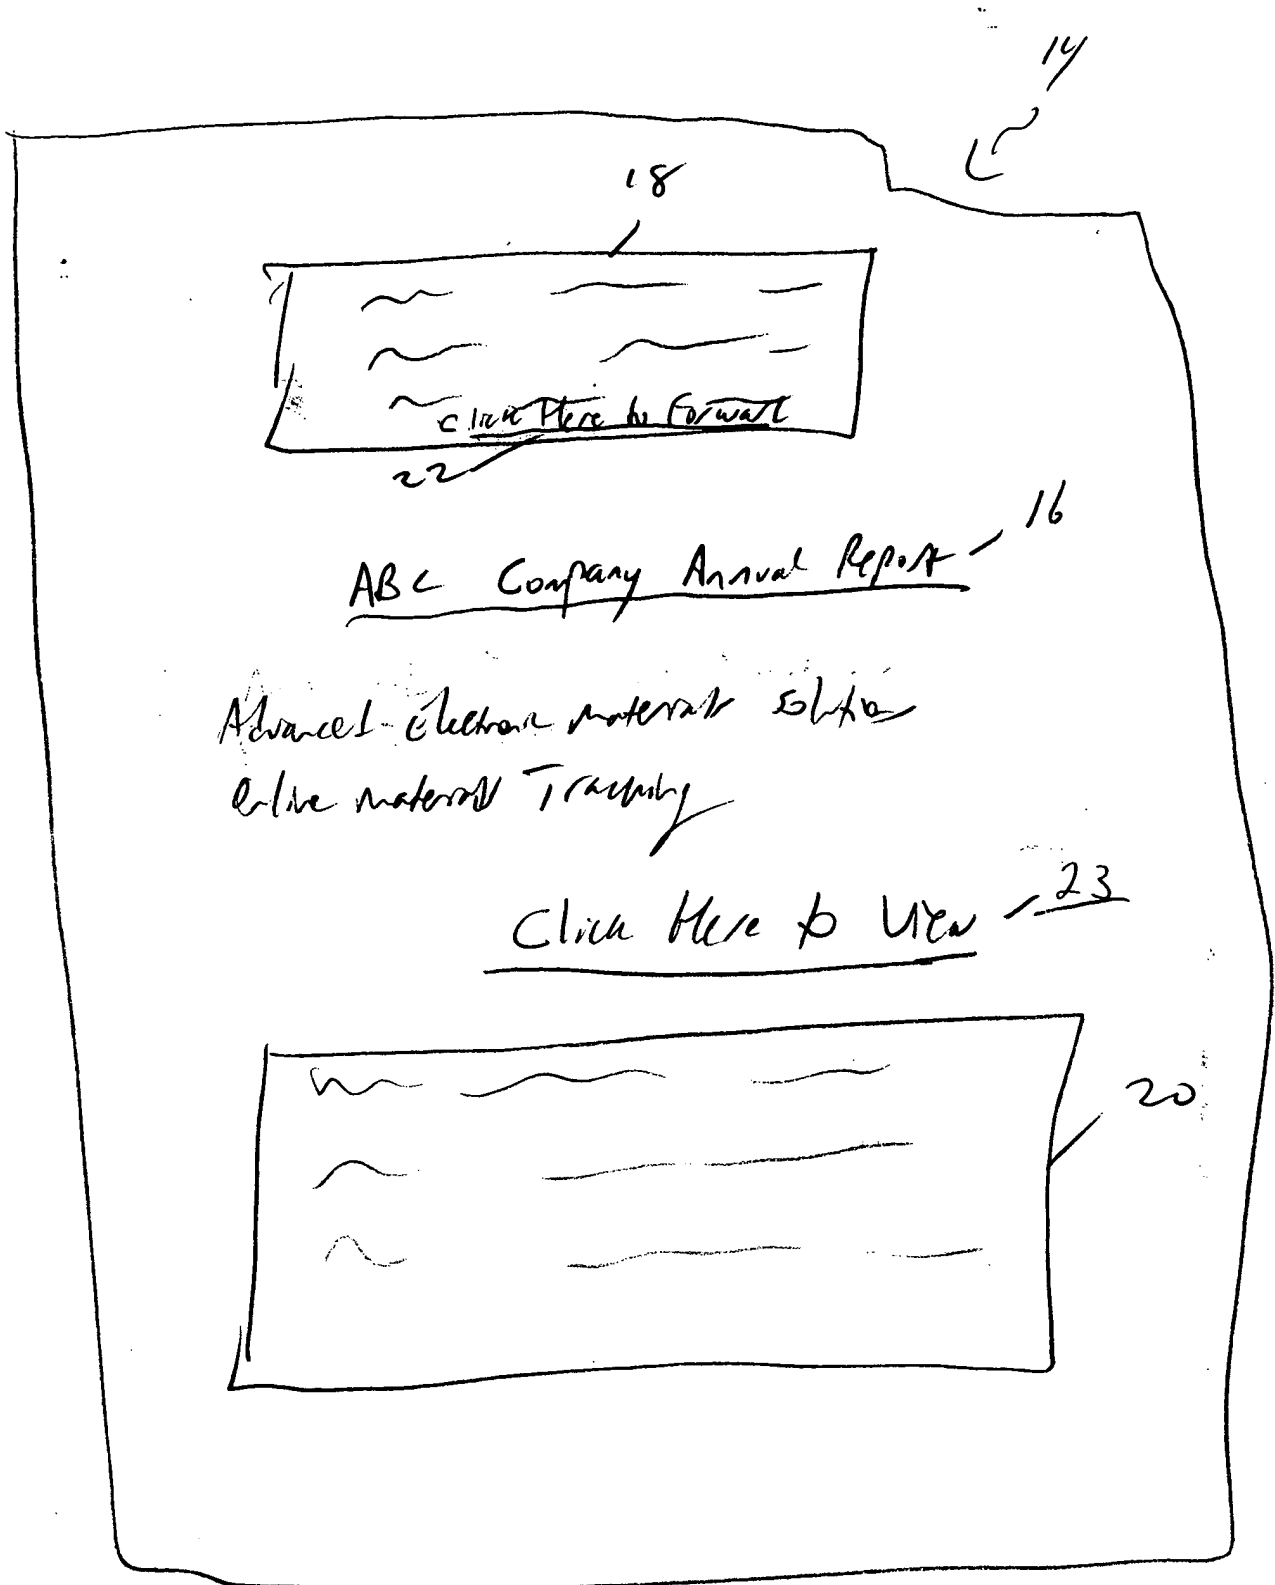 14
18
Click Here to Forward
22
ABC Company Annual Report 16
Advanced Electronic Materials Solution
Online Materials Tracking
Click Here to View 23
20